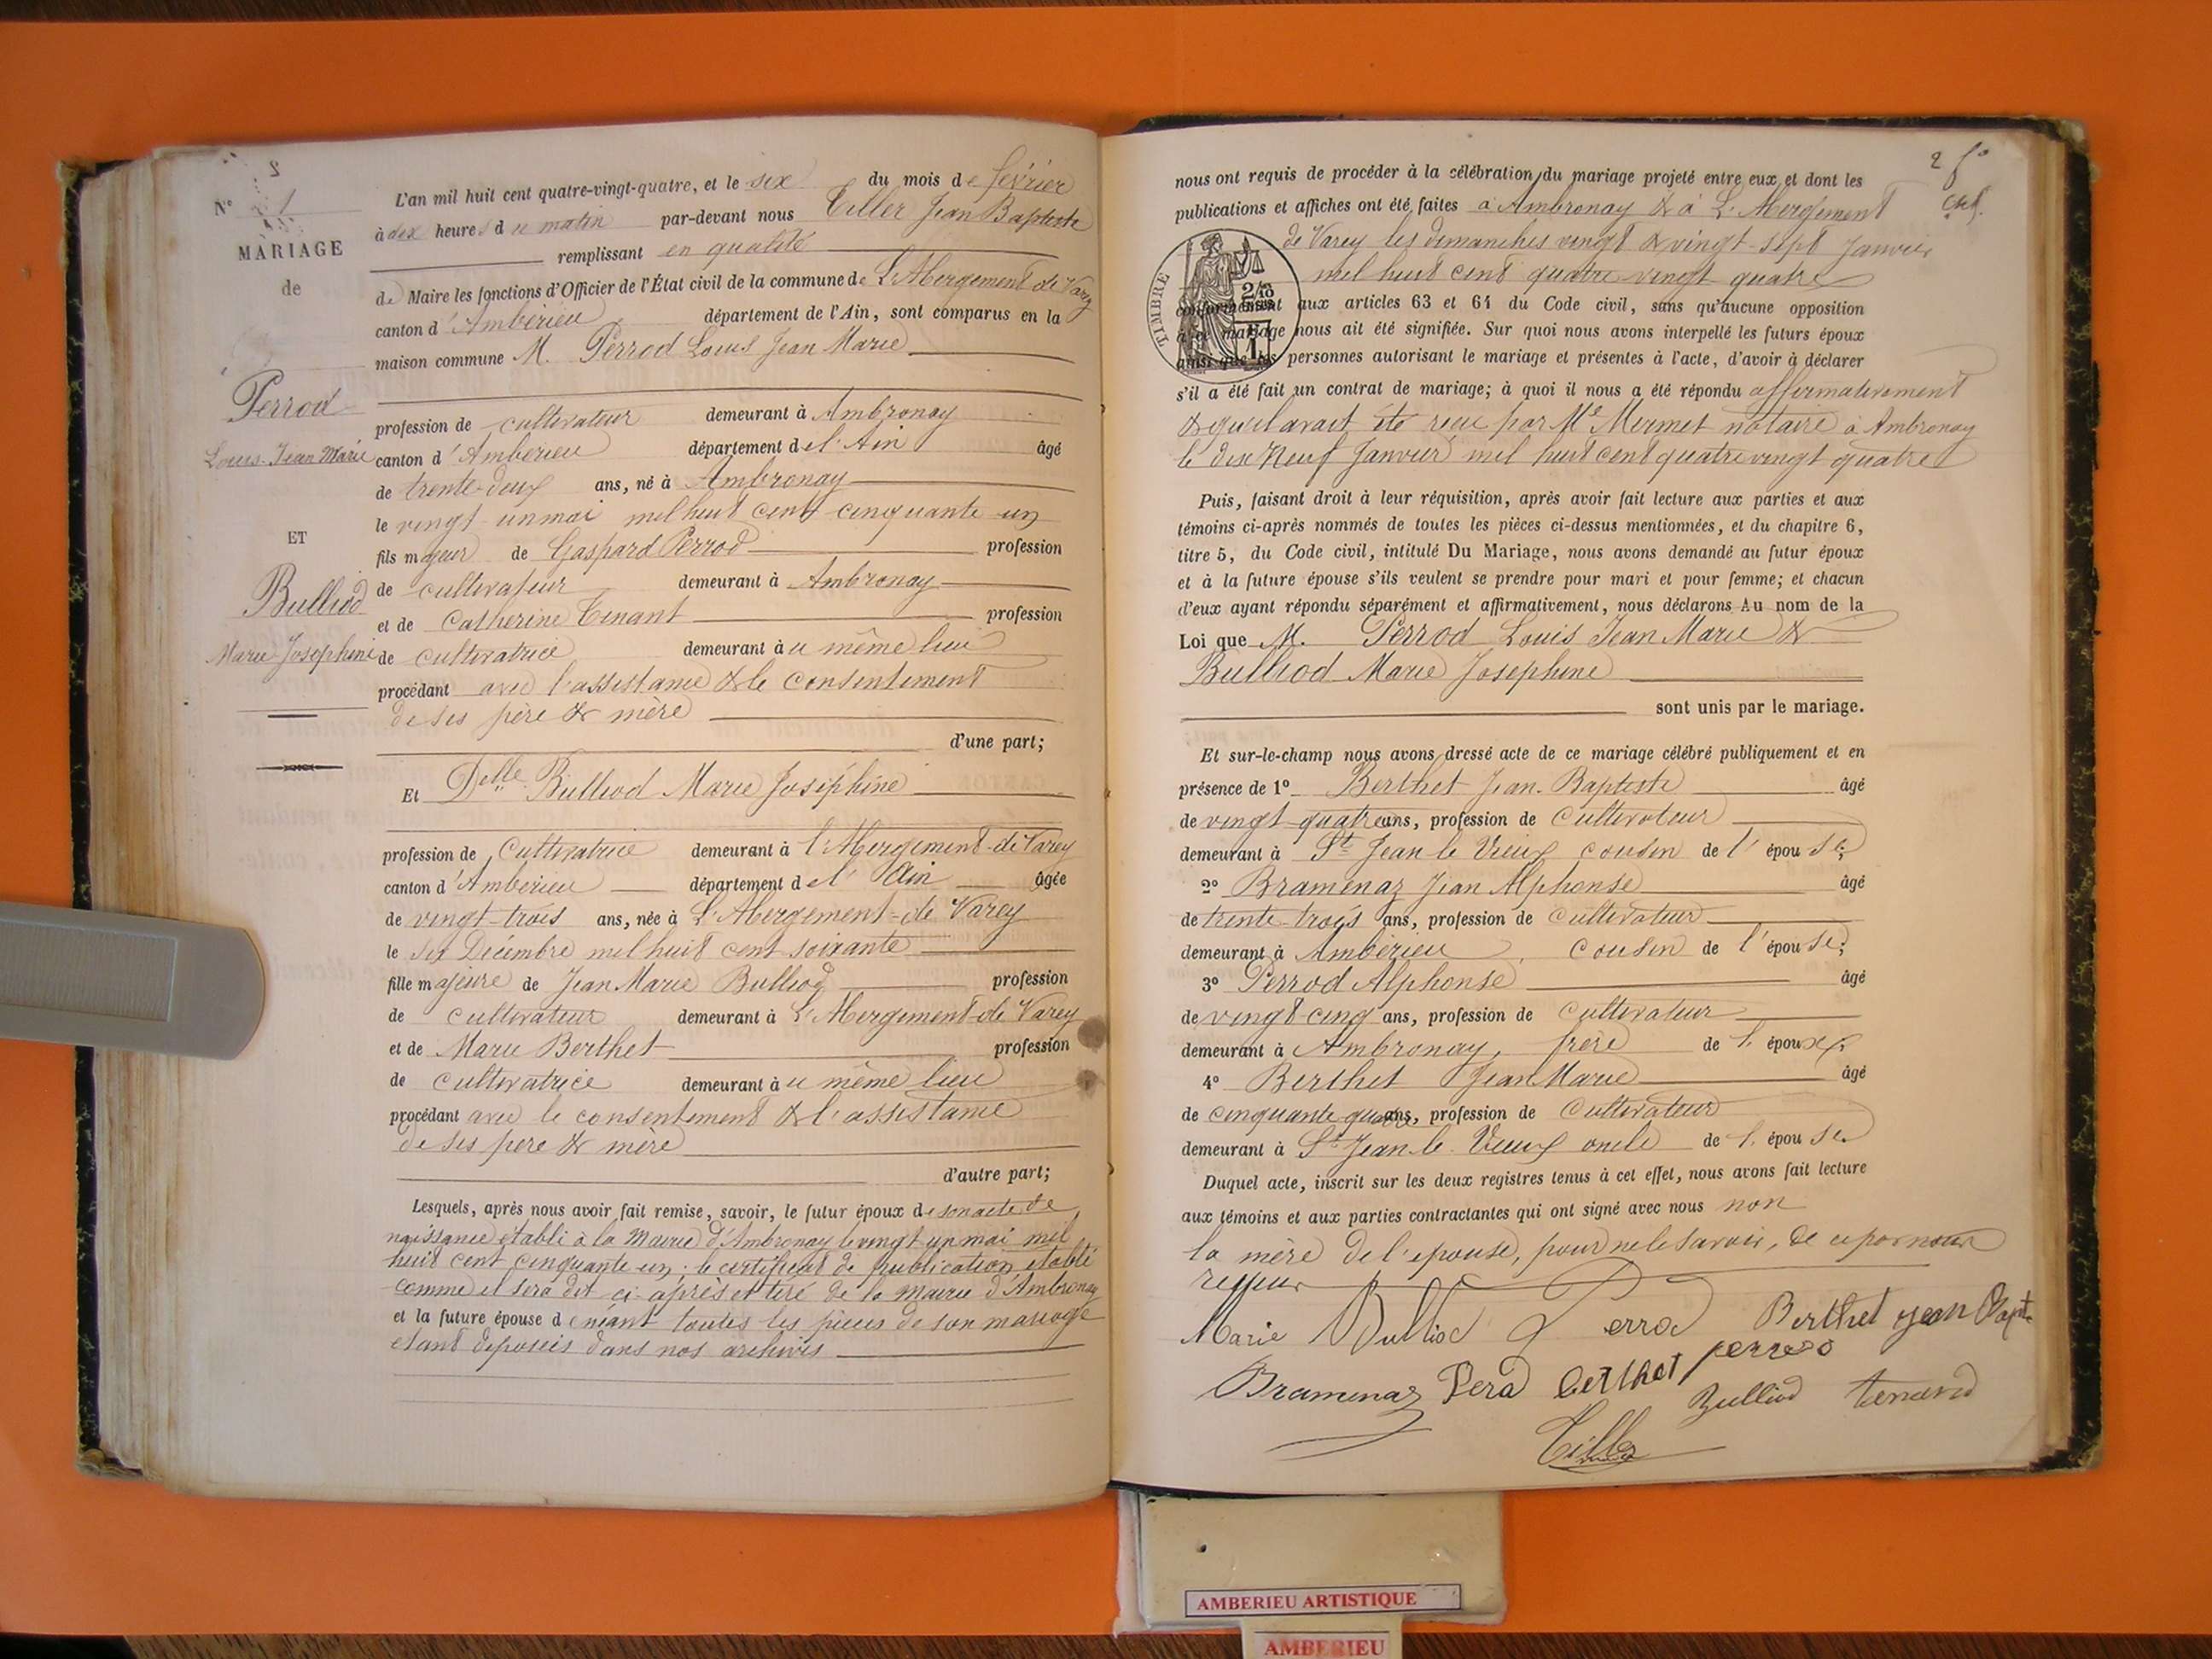 2
N° 1
MARIAGE
de
Perrod
Louis Jean Marie
ET
Bulliod
Marie Joséphine
L'an mil huit cent quatre-vingt-quatre, et le six du mois de février
à dix heures du matin par-devant nous Tiller Jean Baptiste
remplissant en qualité
de Maire les fonctions d'Officier de l'État civil de la commune de L'Abergement de Varey
canton d'Ambérieu département de l'Ain, sont comparus en la
maison commune M. Perrod Louis Jean Marie
profession de cultivateur demeurant à Ambronay
canton d'Ambérieu département de l'Ain âgé
de trente-deux ans, né à Ambronay
le vingt-un mai mil huit cent cinquante-un
fils majeur de Gaspard Perrod profession
de cultivateur demeurant à Ambronay
et de Catherine Tenant profession
de cultivatrice demeurant au même lieu
procédant avec l'assistance & le consentement
de ses père & mère
d'une part;
Et Delle Bulliod Marie Joséphine
profession de Cultivatrice demeurant à l'Abergement-de Varey
canton d'Ambérieu département de l'Ain âgée
de vingt-trois ans, née à L'Abergement-de Varey
le six Décembre mil huit cent soixante
fille majeure de Jean Marie Bulliod profession
de cultivateur demeurant à L'Abergement-de Varey
et de Marie Berthet profession
de cultivatrice demeurant au même lieu
procédant avec le consentement & l'assistance
de ses père & mère
d'autre part;
Lesquels, après nous avoir fait remise, savoir, le futur époux de son acte de
naissance établi à la Mairie d'Ambronay le vingt un mai mil
huit cent cinquante-un; le certificat de publication établi
comme il sera dit ci-après et tiré de la Mairie d'Ambronay
et la future épouse de néant toutes les pièces de son mariage
étant déposées dans nos archives
2
nous ont requis de procéder à la célébration du mariage projeté entre eux et dont les
publications et affiches ont été faites à Ambronay & à L'Abergement
de Varey les dimanches vingt & vingt-sept Janvier
mil huit cent quatre vingt quatre
TIMBRE
conformément aux articles 63 et 64 du Code civil, sans qu'aucune opposition
à ce mariage nous ait été signifiée. Sur quoi nous avons interpellé les futurs époux
ainsi que les personnes autorisant le mariage et présentes à l'acte, d'avoir à déclarer
s'il a été fait un contrat de mariage; à quoi il nous a été répondu affirmativement
& qu'il avait été reçu par Me Mermet notaire à Ambronay
le dix Neuf Janvier mil huit cent quatre vingt quatre
Puis, faisant droit à leur réquisition, après avoir fait lecture aux parties et aux
témoins ci-après nommés de toutes les pièces ci-dessus mentionnées, et du chapitre 6,
titre 5, du Code civil, intitulé Du Mariage, nous avons demandé au futur époux
et à la future épouse s'ils veulent se prendre pour mari et pour femme; et chacun
d'eux ayant répondu séparément et affirmativement, nous déclarons Au nom de la
Loi que M. Perrod Louis Jean Marie &
Bulliod Marie Josephine
sont unis par le mariage.
Et sur-le-champ nous avons dressé acte de ce mariage célébré publiquement et en
présence de 1° Berthet Jean-Baptiste âgé
de vingt-quatre ans, profession de Cultivateur
demeurant à St Jean le Vieux cousin de l'épouse;
2° Bramenaz Jean Alphonse âgé
de trente-trois ans, profession de Cultivateur
demeurant à Ambérieu, Cousin de l'épouse;
3° Perrod Alphonse âgé
de vingt-cinq ans, profession de Cultivateur
demeurant à Ambronay, frère de l'époux;
4° Berthet Jean Marie âgé
de cinquante-quatre ans, profession de Cultivateur
demeurant à St Jean-le-Vieux oncle de l'épouse
Duquel acte, inscrit sur les deux registres tenus à cet effet, nous avons fait lecture
aux témoins et aux parties contractantes qui ont signé avec nous non
la mère de l'épouse, pour ne le savoir, de ce par nous
requis
Marie Bulliod Perrod Berthet jean Bapt
Bramenaz Pera berthet perrod
Bulliod tenand
Tiller
AMBERIEU ARTISTIQUE
AMBERIEU